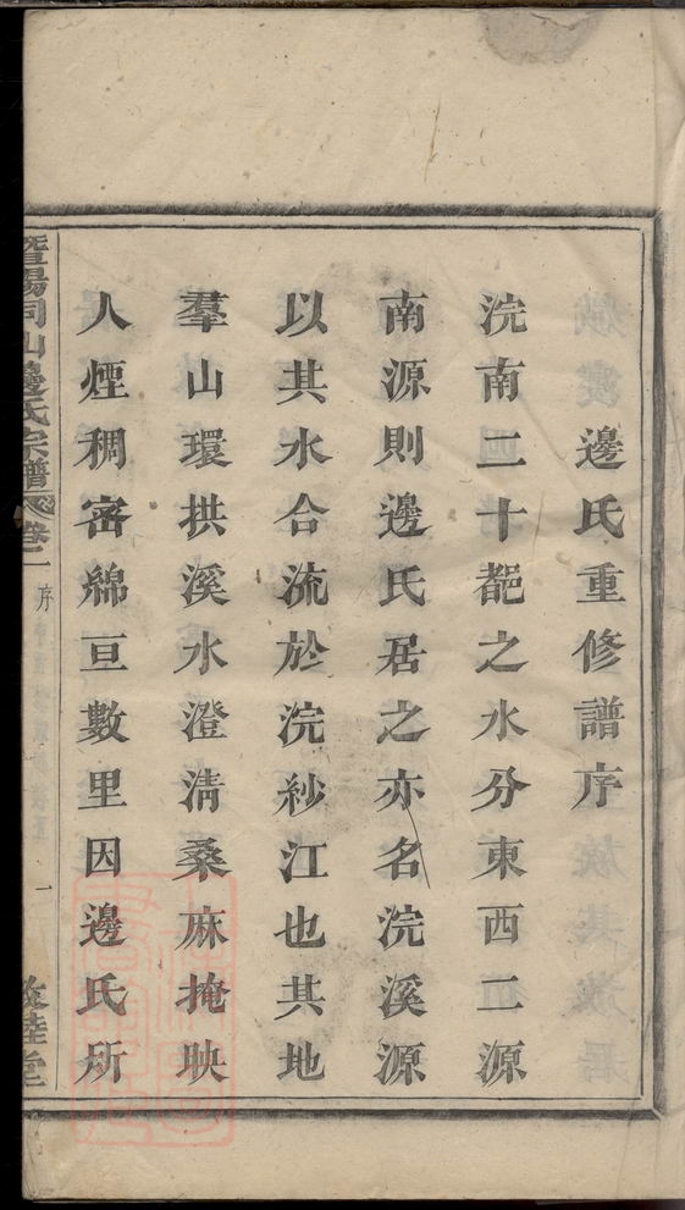 邊氏重修譜序
浣南二十都之水分東西二源
南源則邊氏居之亦名浣溪源
以其水合流於浣紗江也其地
羣山環拱溪水澄清桑麻掩映
人煙稠密綿亘數里因邊氏所
暨陽同山邊氏宗譜 卷二 序 一 敦睦堂